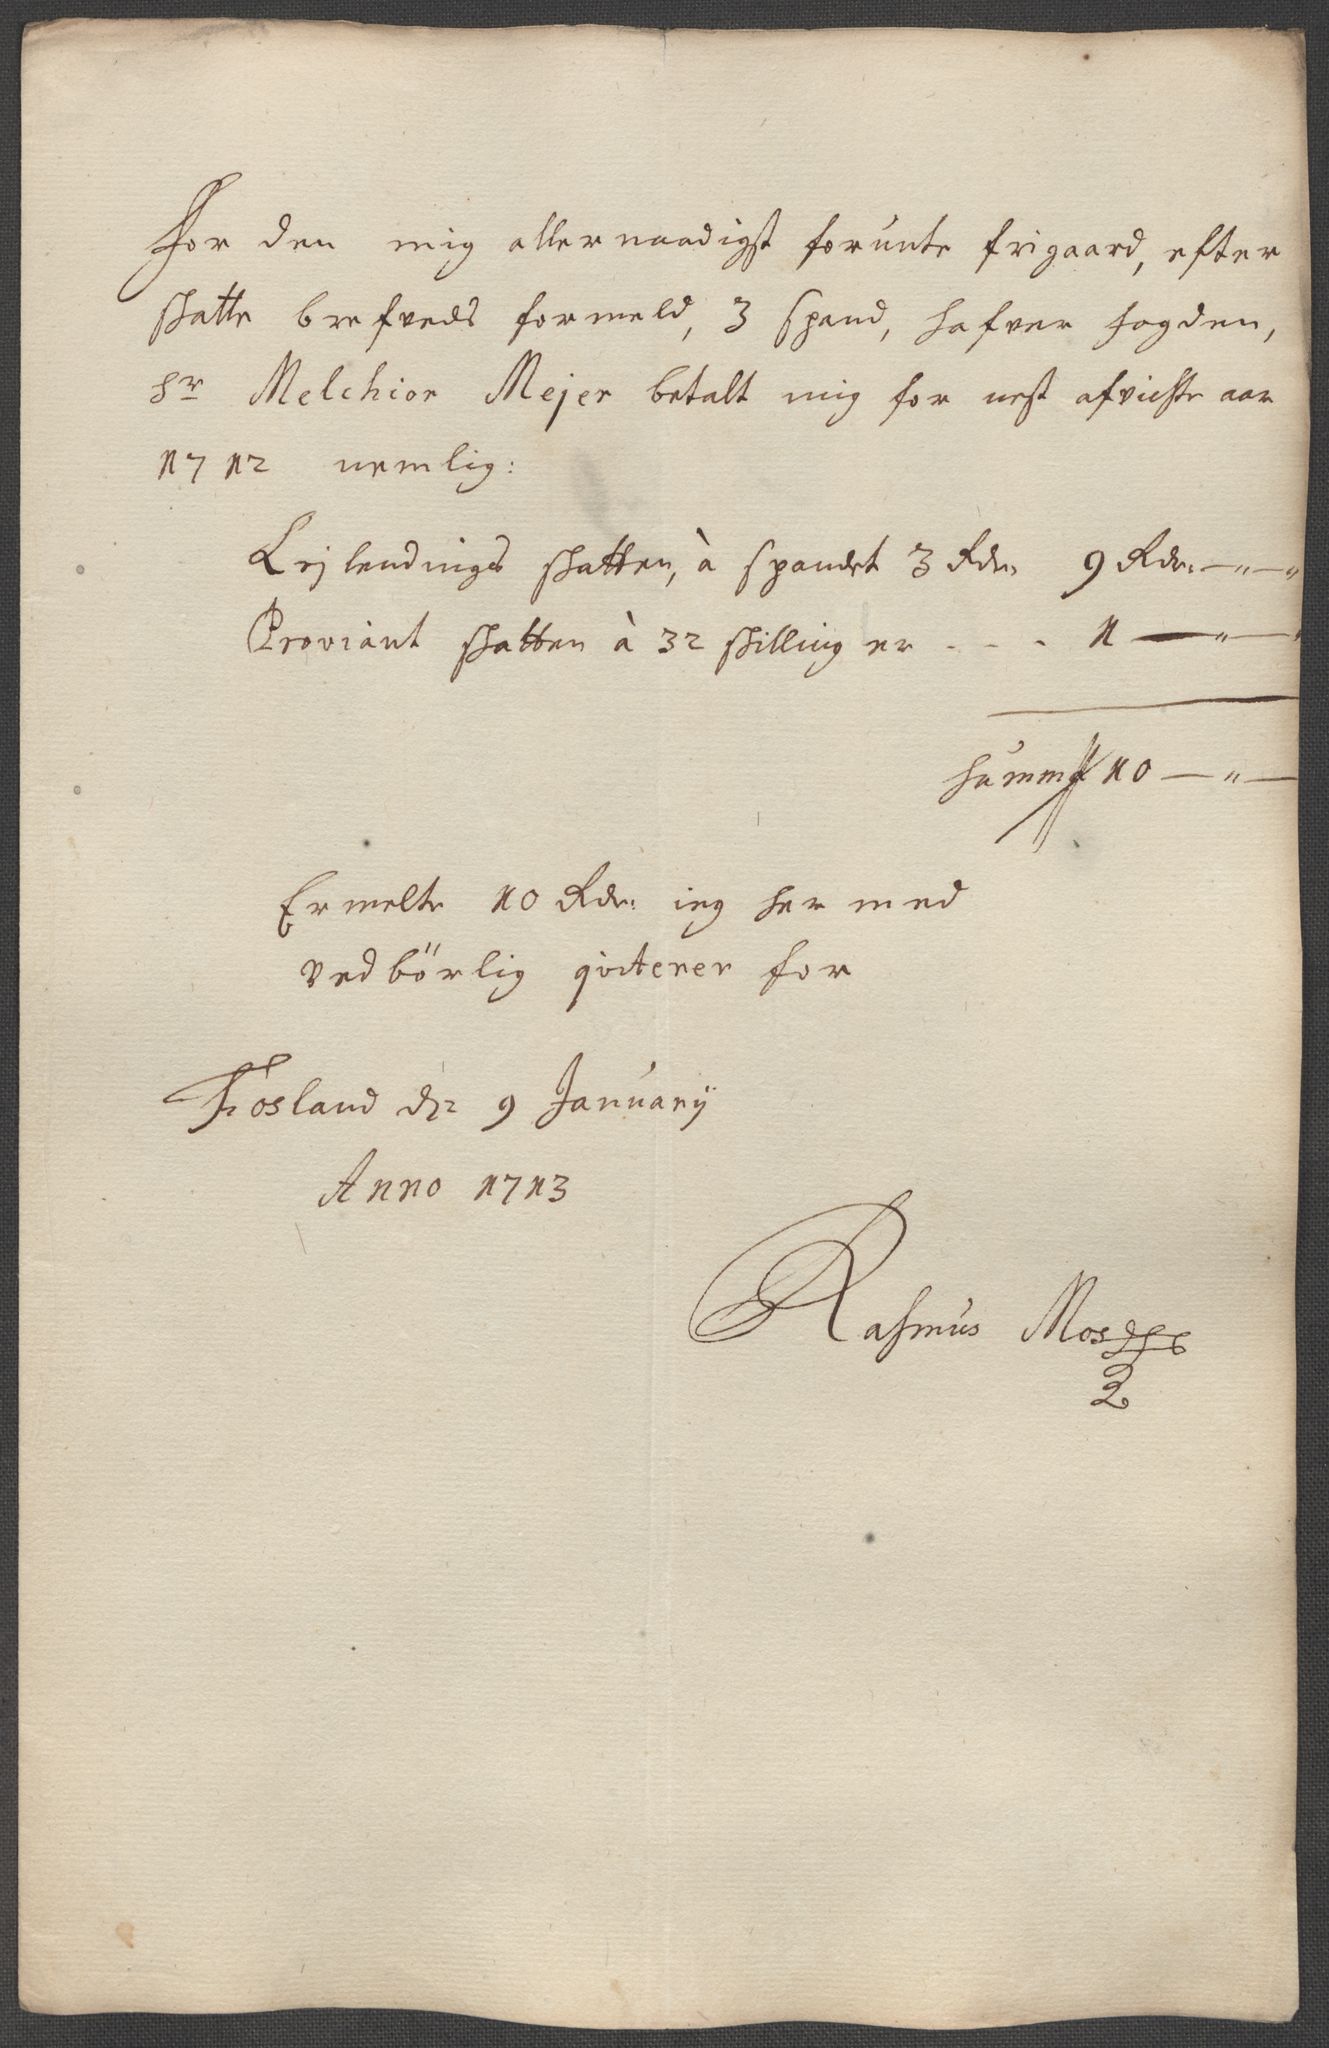 For den mig allernaadigst forunte frigaard, efter
skatte brefveds formeld, 3 spand, hafver fogden,
hr Melchior Mejer betalt mig for nest afvichte aar
1712 nemlig:
Lejlendings skatten, à spandet 3 Rdr: 9 Rdr: — " — "
Proviant skatten à 32 skillinger - - - 1 — " —
Summa 10 — " —
Ermelte 10 Rdr: ieg her med
vedbörlig qviterer for
Fosland d: 9 January
Anno 1713
Rasmus